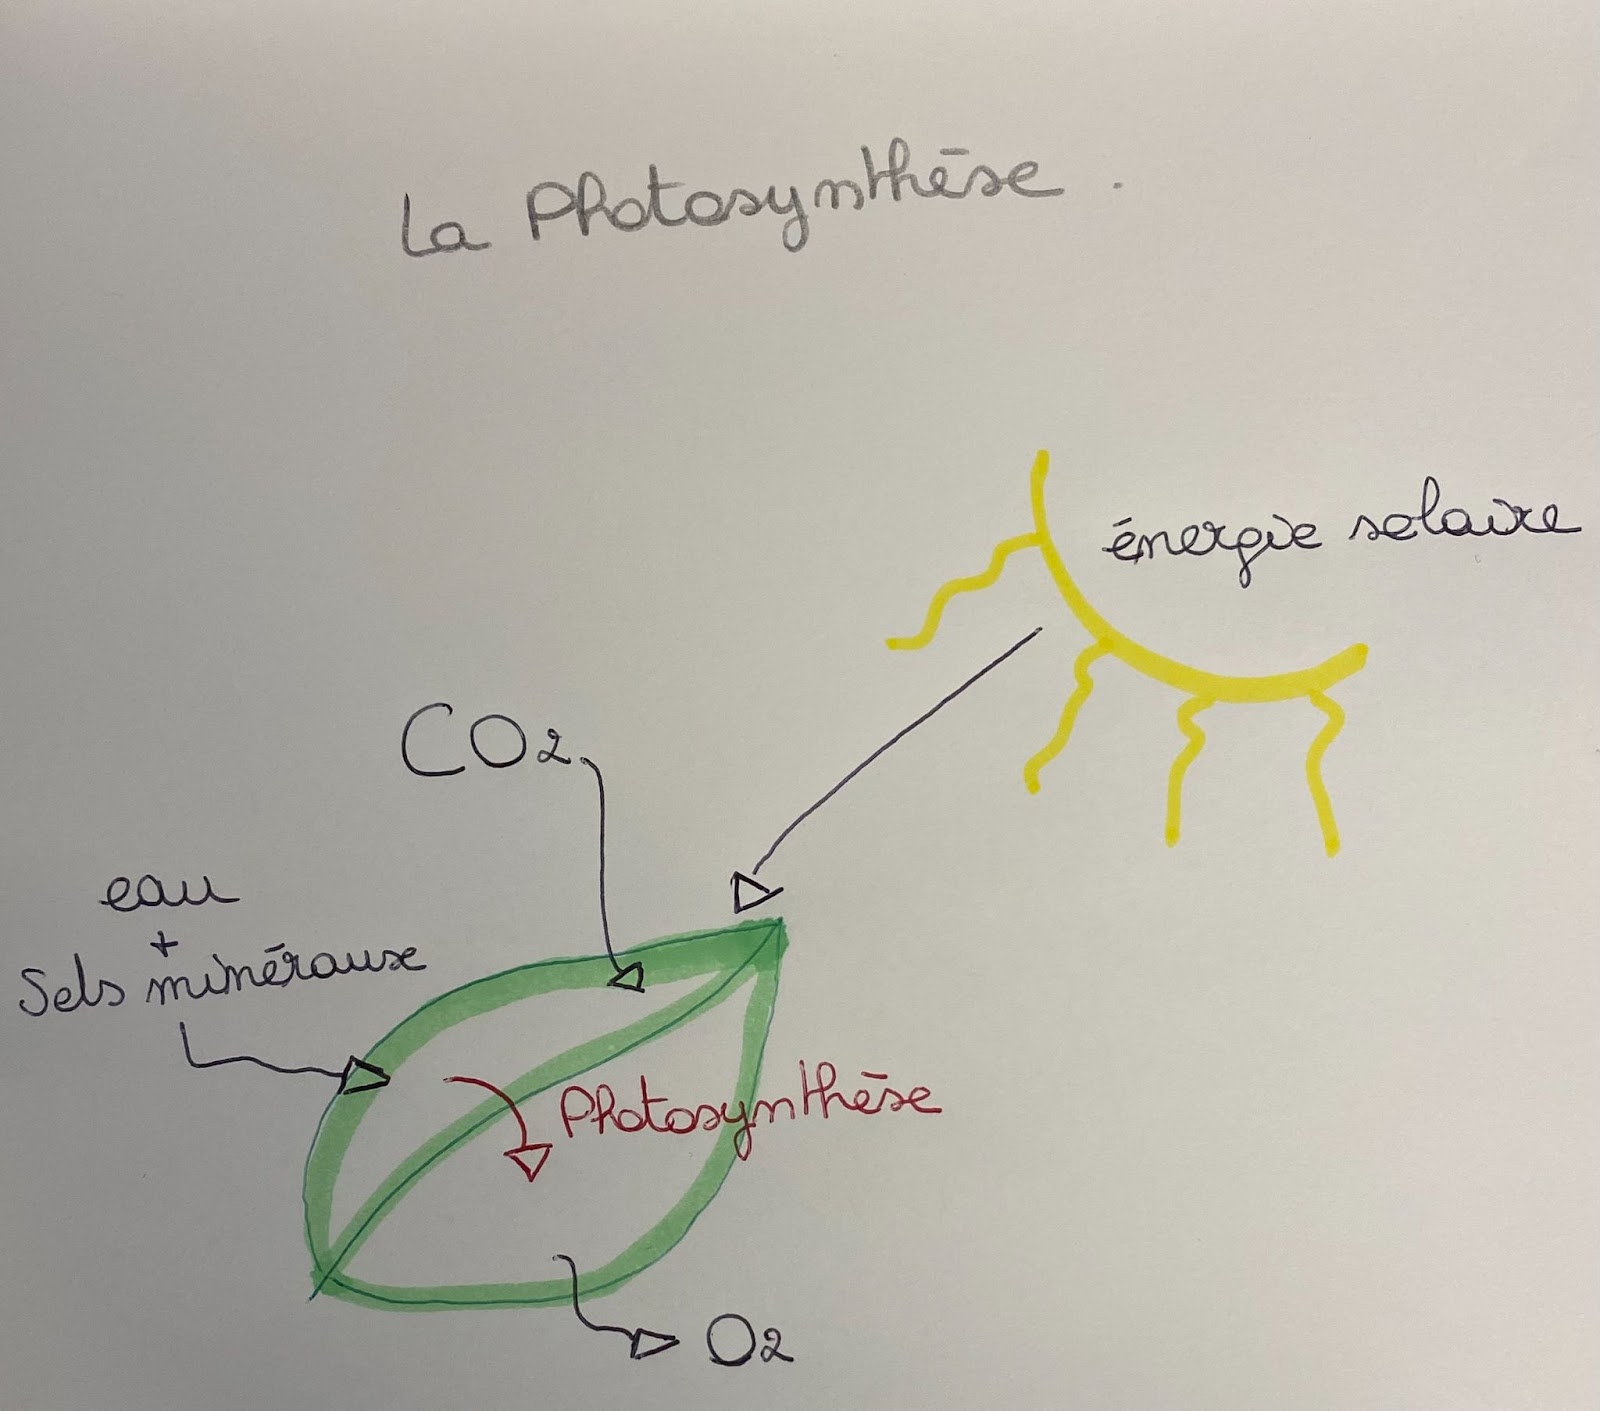 La Photosynthèse.
énergie solaire
CO2
eau
+
Sels minéraux
Photosynthèse
O2